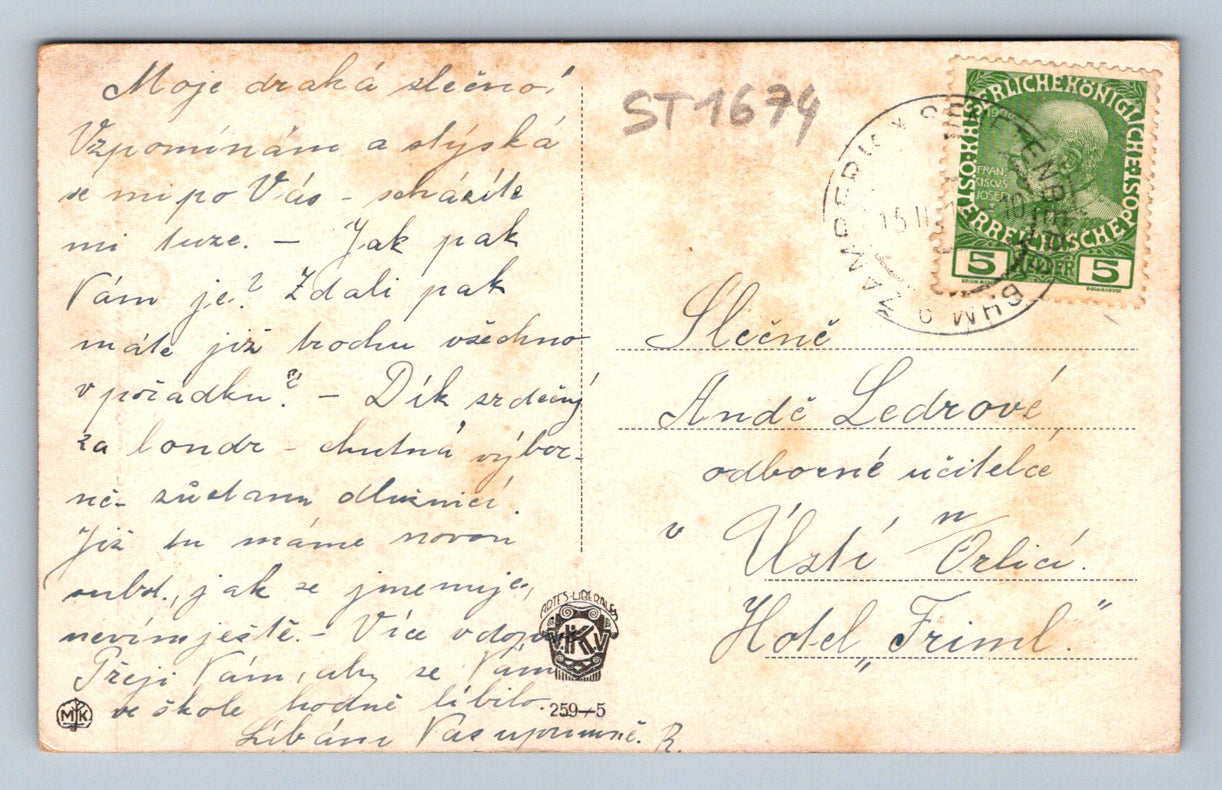 Moje drahá slečno!
Vzpomínám a stýská
se mi po Vás – scházíte
mi tuze. – Jak pak
Vám je? Zdali pak
máte již trochu všechno
v pořádku? – Dík srdečný
za bondr – chutná výbor-
ně – zůstanu dlužnicí.
Již tu máme novou
subst., jak se jmenuje,
nevím ještě. – Více v dopise
Přeji Vám, aby se Vám
ve škole hodně líbilo.
Líbám Vás upřímně. R.
ST1674
KAISERLICHE KÖNIGLICHE ÖSTERREICHISCHE POST
FRAN
CISCUS
JOSEF
5 HELLER 5
ZAMBERK
SENFTENBERG
BÖHM
15 II
10
Slečně
Andě Ledrové,
odborné učitelce
v Ústí n/Orlicí.
Hotel „Friml."
ARTES · LIBERALES
V.K.V
259–5
MK